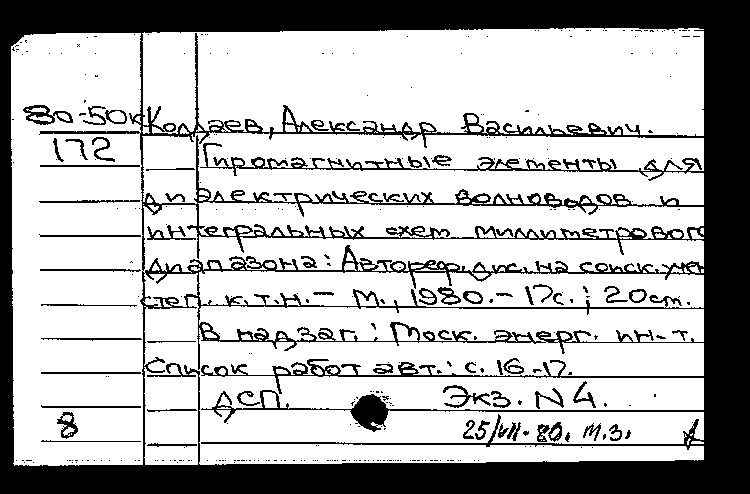 80-50к Колдаев, Александр Васильевич.
172 Гиромагнитные элементы для
диэлектрических волноводов и
интегральных схем миллиметрового
диапазона: Автореф. дис. на соиск. учен
степ. к.т.н. - М., 1980. - 17с.; 20см.
В надзаг.: Моск. энерг. ин-т.
Список работ авт.: с. 16-17.
ДСП. Экз. N4.
8 25/VII-80. т.з.